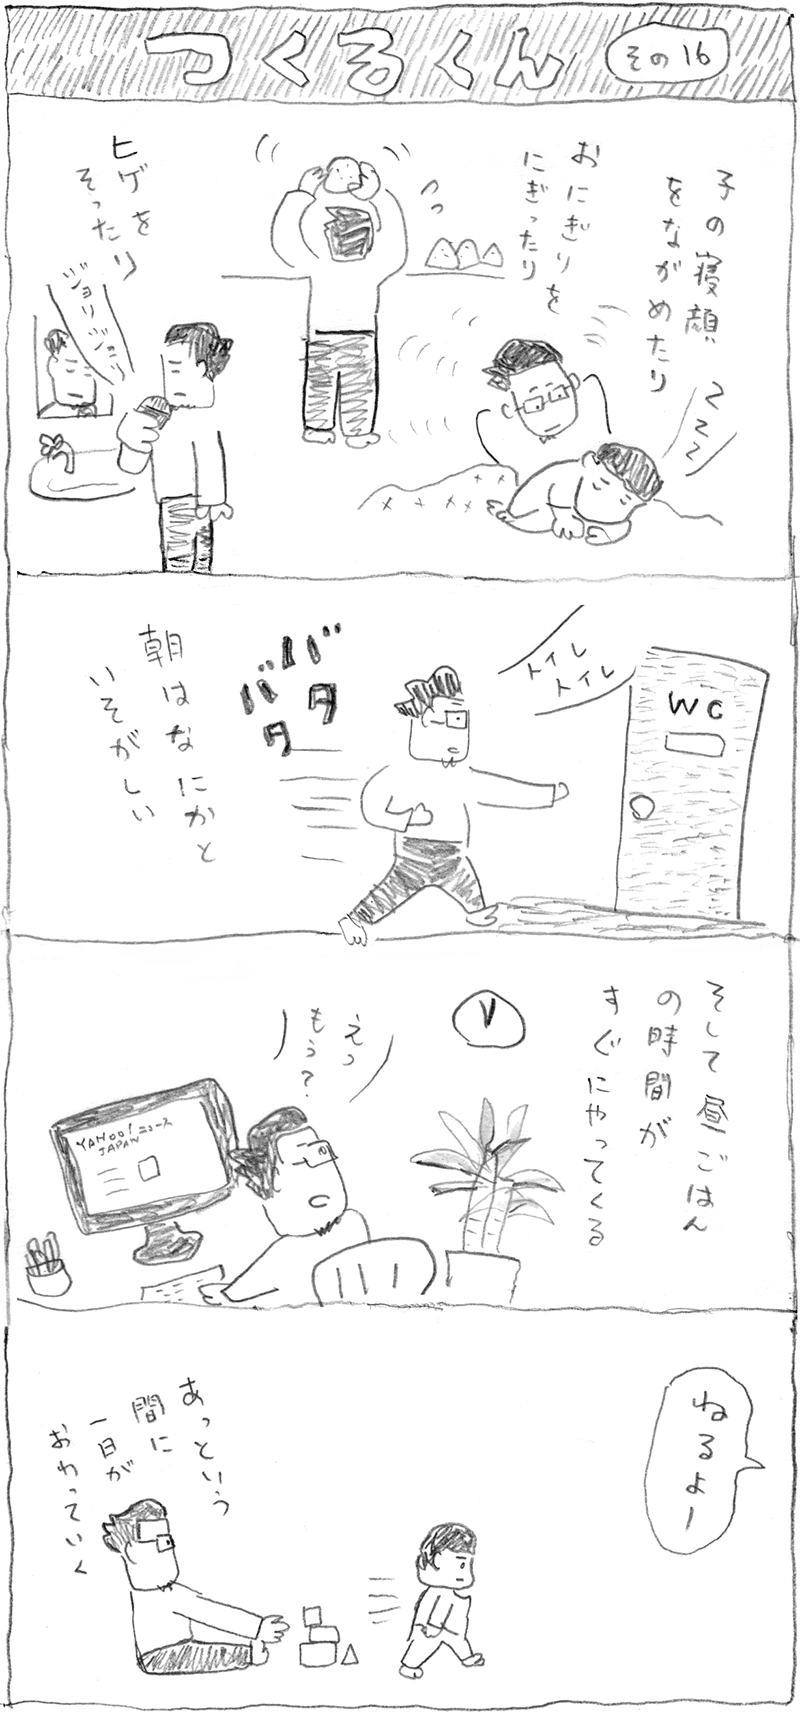 つくるくん
その16
子の寝顔
をながめたり
zzz
おにぎりを
にぎったり
ヒゲを
そったり
ジョリジョリ
トイレ
トイレ
WC
バタ
バタ
朝はなにかと
いそがしい
そして昼ごはん
の時間が
すぐにやってくる
えっ
もう?
YAHOO!ニュース
JAPAN
ねるよー
あっという
間に
一日が
おわっていく